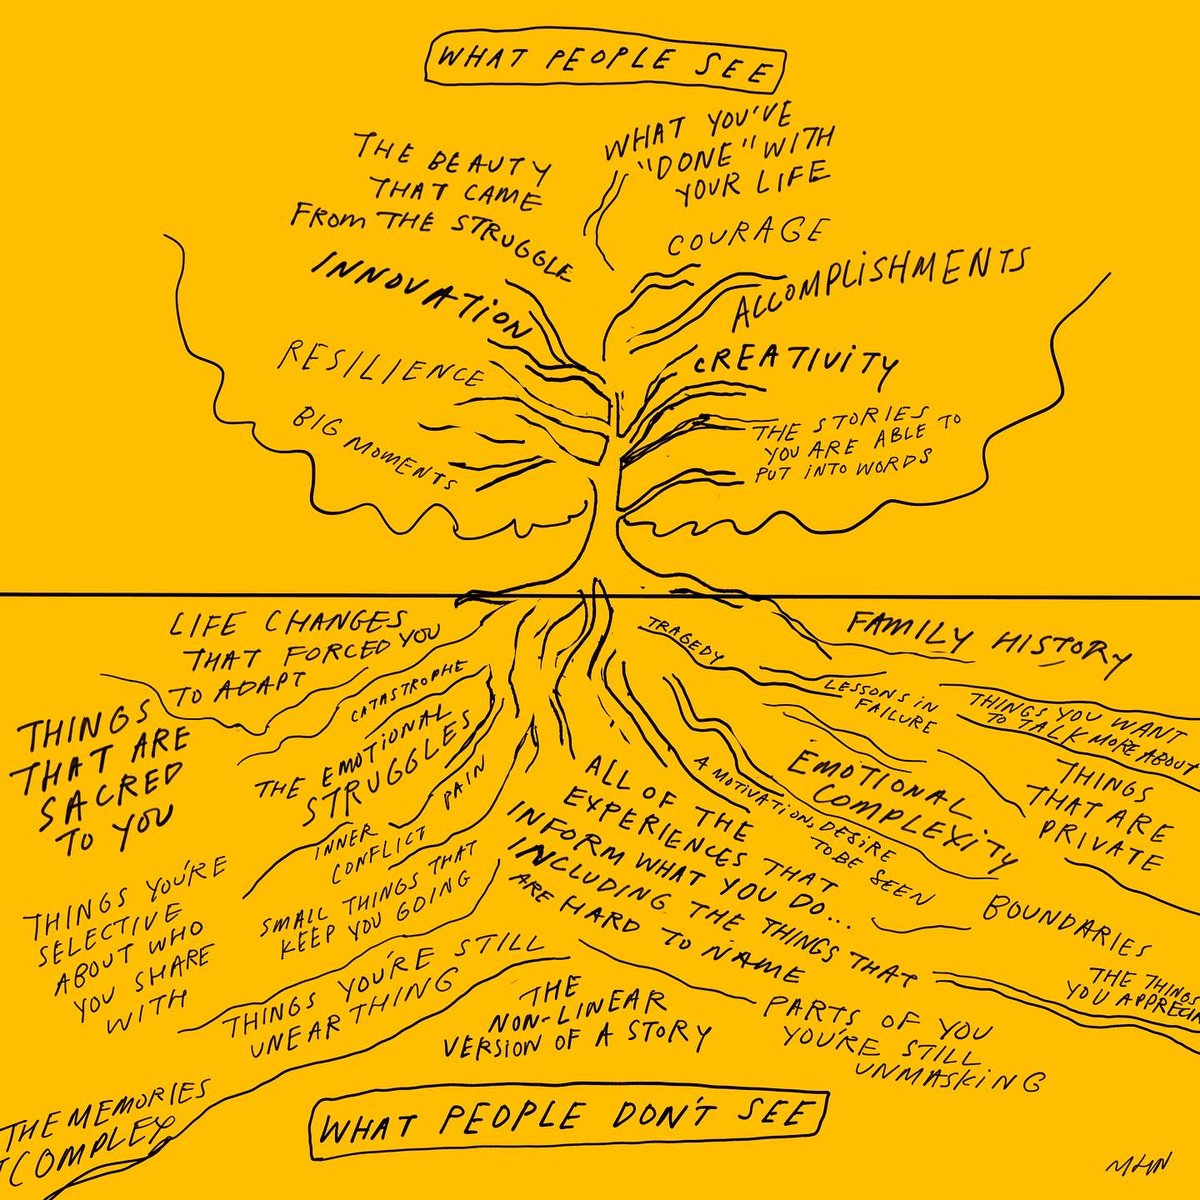 WHAT PEOPLE SEE
THE BEAUTY
THAT CAME
FROM THE STRUGGLE
WHAT YOU'VE
"DONE" WITH
YOUR LIFE
COURAGE
INNOVATION
ACCOMPLISHMENTS
RESILIENCE
CREATIVITY
BIG MOMENTS
THE STORIES
YOU ARE ABLE TO
PUT INTO WORDS
LIFE CHANGES
THAT FORCED YOU
TO ADAPT
TRAGEDY
FAMILY HISTORY
CATASTROPHE
LESSONS IN
FAILURE
THINGS YOU WANT
TO TALK MORE ABOUT
THINGS
THAT ARE
SACRED
TO YOU
THE EMOTIONAL
STRUGGLES
PAIN
INNER
CONFLICT
A MOTIVATION, DESIRE
TO BE SEEN
EMOTIONAL
COMPLEXITY
THINGS
THAT ARE
PRIVATE
ALL OF THE
EXPERIENCES THAT
INFORM WHAT YOU DO...
INCLUDING THE THINGS THAT
ARE HARD TO NAME
THINGS YOU'RE
SELECTIVE
ABOUT WHO
YOU SHARE
WITH
SMALL THINGS THAT
KEEP YOU GOING
BOUNDARIES
THINGS YOU'RE STILL
UNEARTHING
THE
NON-LINEAR
VERSION OF A STORY
PARTS OF YOU
YOU'RE STILL
UNMASKING
THE THINGS
YOU APPRECIA
THE MEMORIES
COMPLEX
WHAT PEOPLE DON'T SEE
MHN